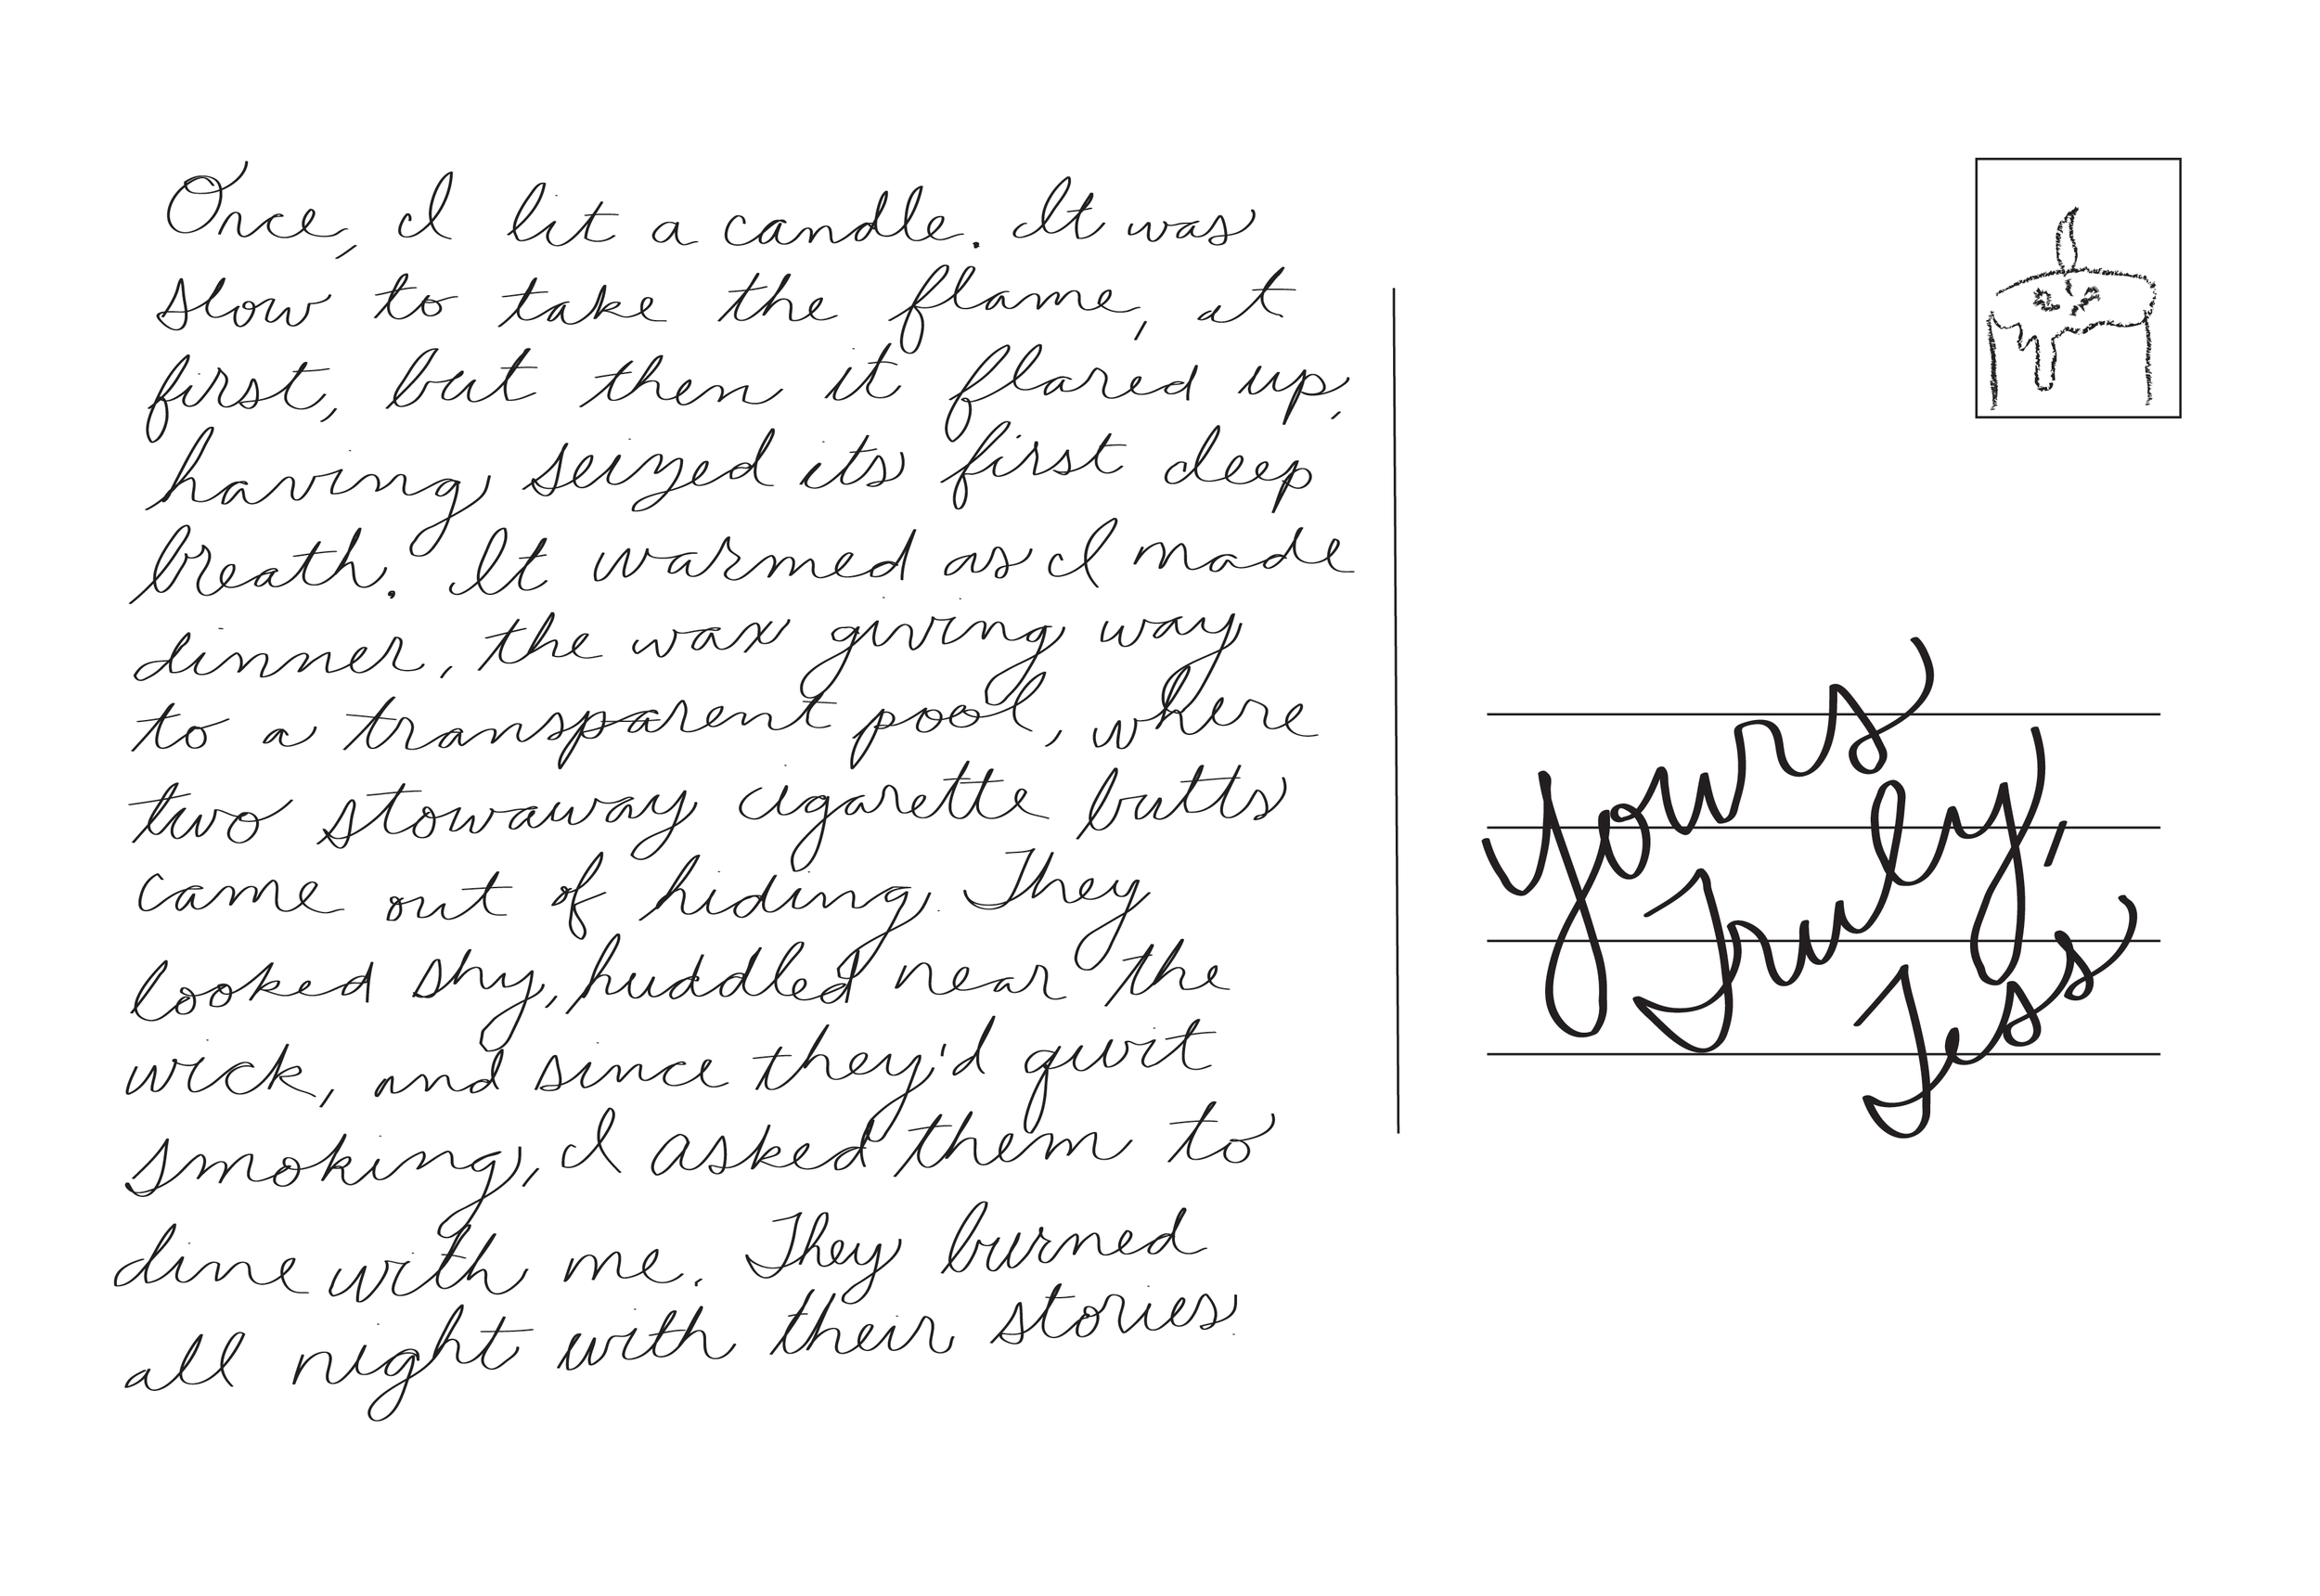 Once, I lit a candle. It was
slow to take the flame, at
first, but then it flared up,
having seized its first deep
breath. It warmed as I made
dinner, the wax giving way
to a transparent pool, where
two stowaway cigarette butts
came out of hiding. They
looked shy, huddled near the
wick, and since they'd quit
smoking, I asked them to
dine with me. They burned
all night with their stories.
Yours
Truly,
Jess